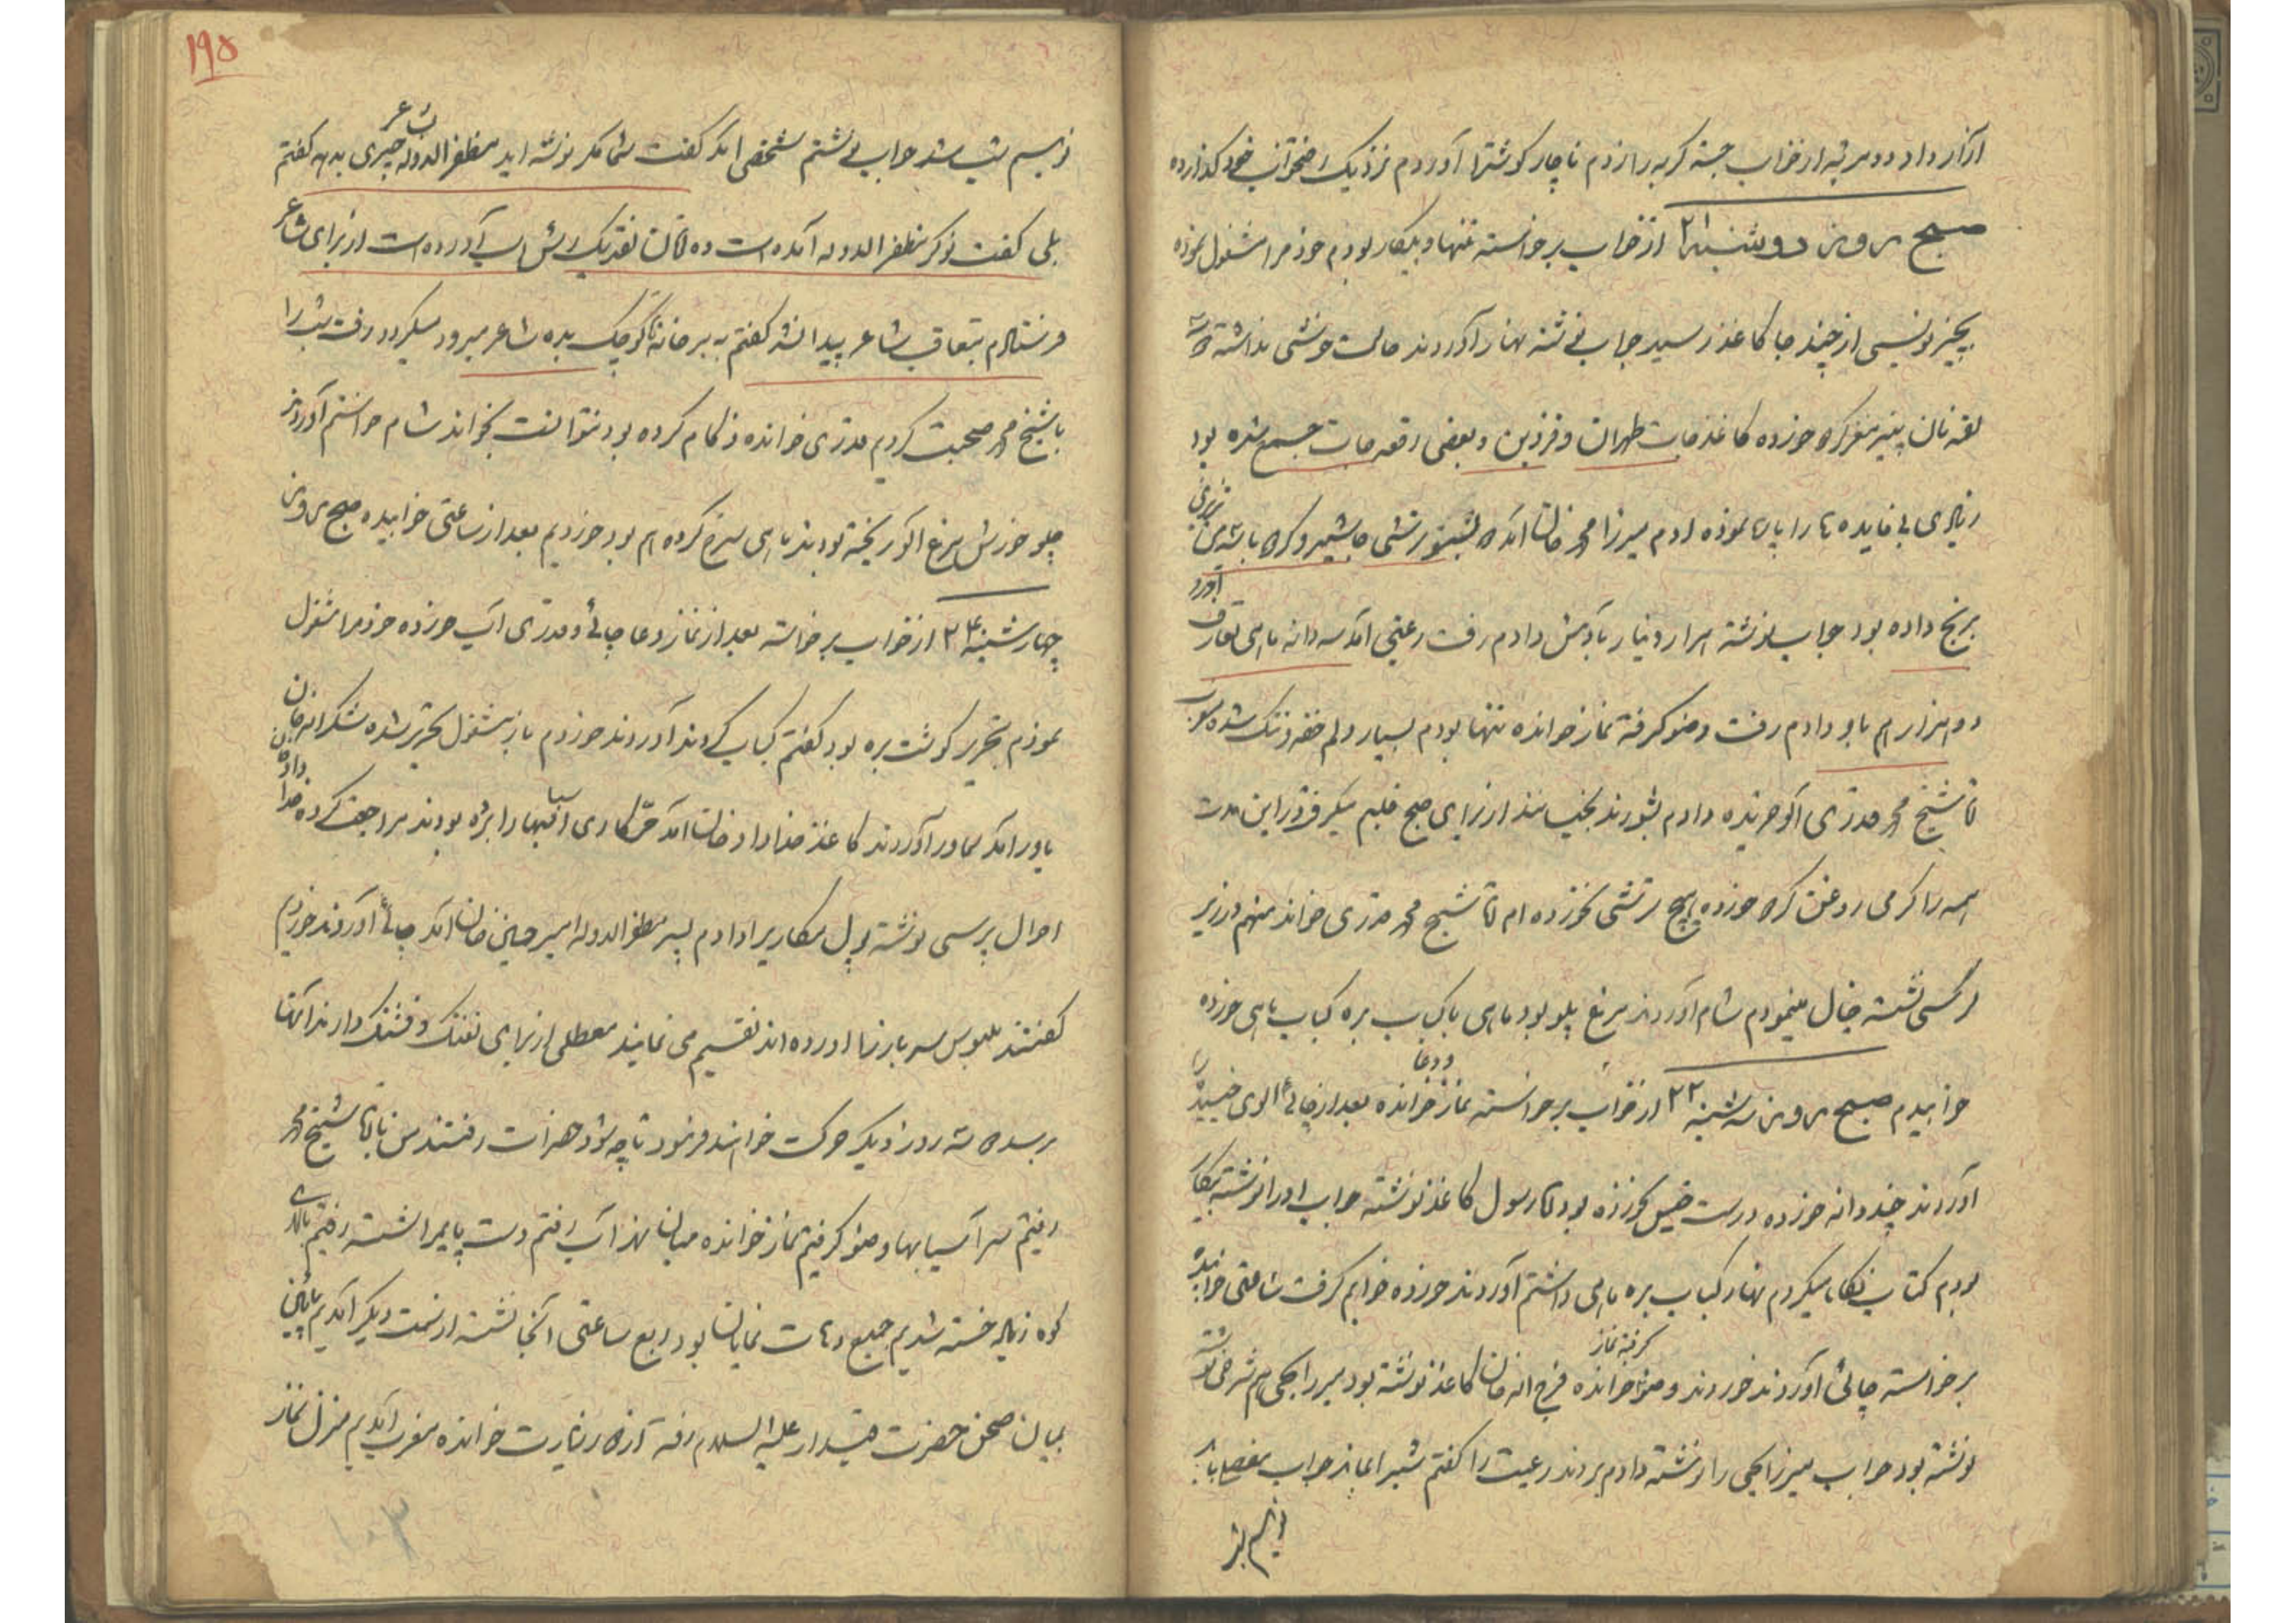 آزار داد دو مرتبه از خواب جسته گربه را زدم ناچار گوشترا آوردم نزدیک رختخواب خود گذارده
صبح روز دوشنبه ۲۱ از خواب برخواسته تنها و بیکار بودم خودمرا مشغول نموده
بچیز نویسی از چند جا کاغذ رسید جواب نوشته نهار آوردند حالت خوشی نداشته
لقمه نان پنیر مغز گردو خورده کاغذجات طهران و قزوین و بعضی رقعه جات جمع شده بود
زیادی بی فایده ها را پاره نموده آدم میرزا محمد خان آمد
برنج داده بود جواب نوشته هزار دینار بآدمش دادم رفت رعیتی آمد سه دانه ماهی تعارف آورد
دو هزار هم باو دادم رفت وضو گرفته نماز خوانده تنها بودم بسیار دلم خفه و تنگ شده بود
ملا شیخ محمد قدری آلو خریده دادم بشورند بخیسانند از برای صبح قلبم میگرفت در این مدت
همه را گرمی روغن کره خورده هیچ ترشی نخورده ام ملا شیخ محمد قدری خواند منهم در زیر
کرسی نشسته خیال مینمودم شام آوردند مرغ پلو بود ماهی با کباب بره کباب ماهی خورده
خوابیدم صبح روز سه شنبه ۲۲ از خواب برخواسته نماز و دعا خوانده بعد از چائی آلوی خیسیده را
آوردند چند دانه خورده درست خیس نخورده بود ملا رسول کاغذ نوشته جواب او را نوشته بیکار
بودم کتاب نگاه میکردم نهار کباب بره ماهی داشتم آوردند خورده خوابم گرفت ساعتی خوابیده
برخواسته چائی آوردند خوردند وضو گرفته نماز خوانده فرج اله خان کاغذ نوشته بود میرزا یحیی هم شرحی نوشته
نوشته بود جواب میرزا یحیی را نوشته دادم بردند رعیت را گفتم شب را بماند جواب مفصل باید
نویسم شب
۱۹۵
نویسم شب شد جواب نوشتم شخصی آمد گفت شما مگر نوشته اید مظفرالدوله چیزی بشاعر بدهد گفتم
بلی گفت نوکر مظفرالدوله آمده است ده تومان نقد یک رأس اسب آورده است از برای شاعر
فرستادم بتعاقب شاعر پیدا نشد گفتم ببر خانه کوچک بده شاعر میرود میگیرد رفت شب را
با شیخ محمد صحبت کردم قدری خوانده زکام کرده بود نتوانست بخواند شام خواستم آوردند
چلو خورش مرغ آلو ریخته بودند ماهی سرخ کرده هم بود خوردیم بعد از ساعتی خوابیده صبح روز
چهارشنبه ۲۳ از خواب برخواسته بعد از نماز و دعا چائی و قدری آب خورده خودمرا مشغول
نمودم بتحریر گوشت بره بود گفتم کباب کردند آوردند خوردم باز مشغول تحریر شده شکراله خان
یاور آمد سماور آوردند کاغذ خداداد خان آمد آسیابها را برده بودند مراجعت کرده خداداد خان
احوال پرسی نوشته پول مکاریرا دادم پسر مظفرالدوله امیر حسین خان آمد چائی آوردند خوردیم
گفتند ملبوس سربازها آورده اند تقسیم می نمایند معطلی از برای تفنگ و فشنگ دارند آنها
برسد سه روز دیگر حرکت خواهند فرمود تا چه شود حضرات رفتند من با ملا شیخ محمد
رفتیم سر آسیابها وضو گرفتم نماز خوانده میان نهر آب رفتم دست پایمرا شسته رفتیم بالای
کوه زیاد خسته شدیم جمیع دهات نمایان بود ربع ساعتی آنجا نشسته از سمت دیگر آمدیم پائین
بمیان صحن حضرت قیدار علیه السلام رفته آنجا زیارت خوانده مغرب آمدیم منزل نماز
۱۰۳